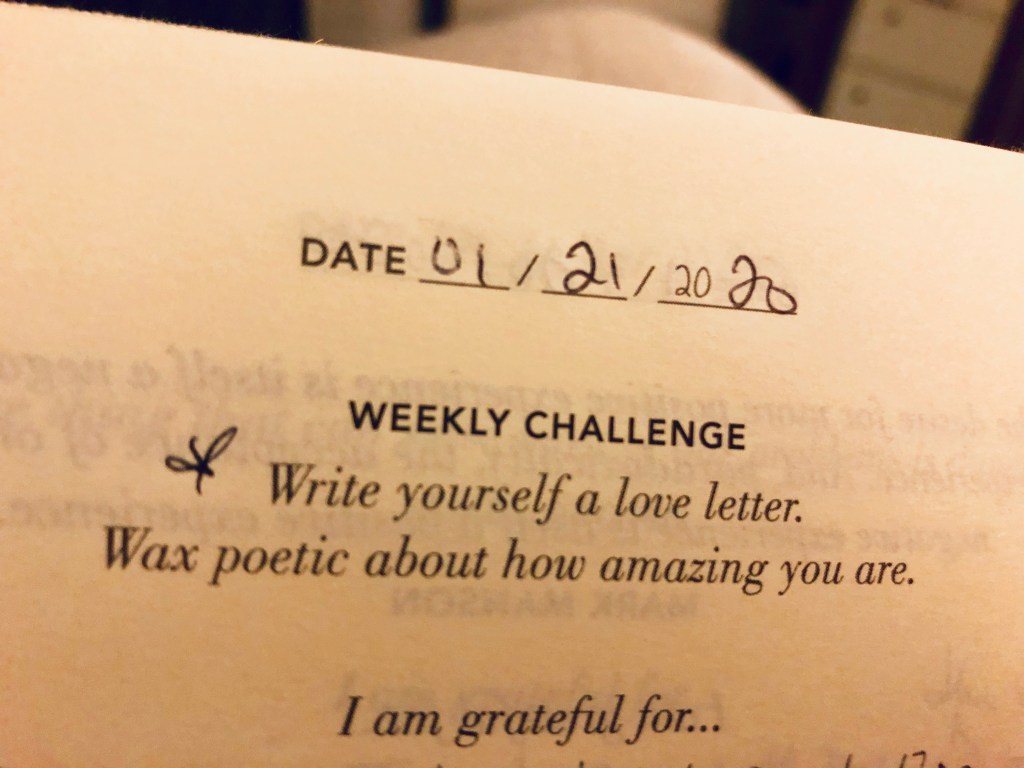 DATE 01 / 21 / 20 20
WEEKLY CHALLENGE
Write yourself a love letter.
Wax poetic about how amazing you are.
MARK MANSON
I am grateful for...